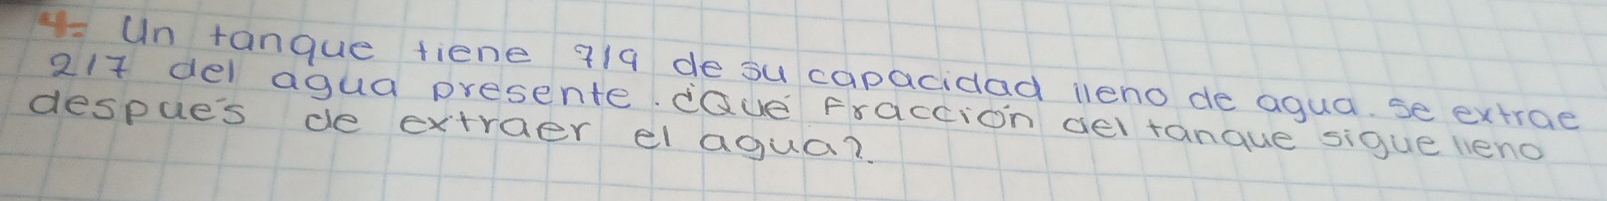 4= Un tanque tiene 7/9 de su capacidad lleno de agua. se extrae
2/7 del agua presente. ¿Qué Fracción del tanque sigue lleno
después de extraer el agua?.